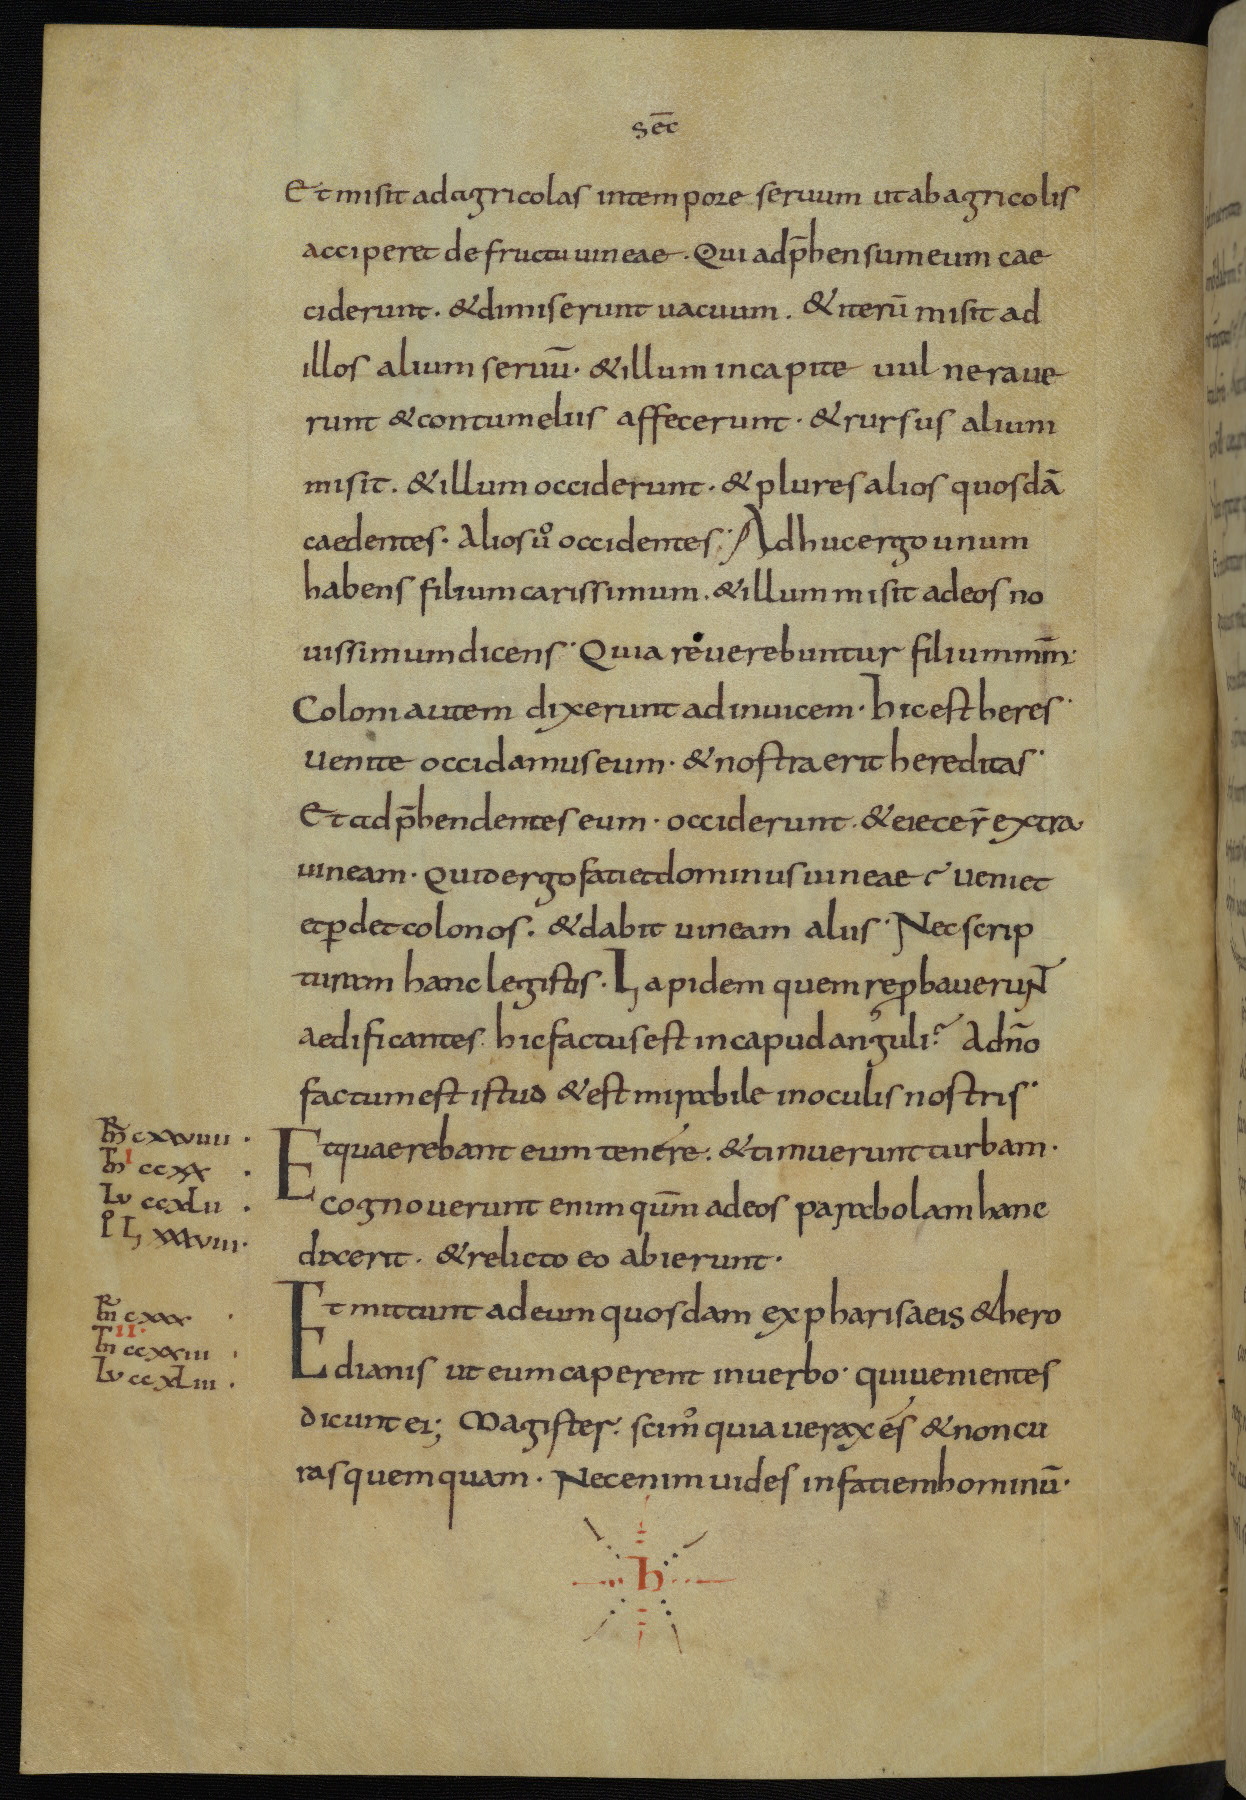 sēc
Et misit ad agricolas in tempore seruum ut ab agricolis
acciperet de fructu uineae · Qui adp̄hensum eum cae
ciderunt · & dimiserunt uacuum · & iterū misit ad
illos alium seruū · & illum in capite uulneraue
runt & contumeliis affecerunt · & rursus alium
misit · & illum occiderunt · & plures alios quosdā
caedentes · Alios uͦ occidentes · Adhuc ergo unum
habens filium carissimum · & illum misit ad eos no
uissimum dicens · Quia reuerebuntur filium mm̄ ·
Coloni autem dixerunt ad inuicem · hic est heres ·
Uenite occidamus eum · & nostra erit hereditas ·
Et adp̄hendentes eum · occiderunt · & eiecer̄ extra
uineam · Quid ergo faciet dominus uineae ? Ueniet
et ꝑdet colonos · & dabit uineam aliis · Nec scrip
turam hanc legistis · Lapidem quem reꝓbauerunt
aedificantes · hic factus est in capud anguli ? A dn̄o
factum est istud & est mirabile in oculis nostris ·
m̄r cxxviiii ·
Et quaerebant eum tenere · & timuerunt turbam ·
m̄ I ccxx ·
Lu ccxLii ·
Cognouerunt enim qūm ad eos parabolam hanc
L xxxviii ·
dixerit · & relicto eo abierunt ·
m̄r cxxx ·
Et mittunt ad eum quosdam ex pharisaeis & hero
m̄ II ccxxiii ·
Lu ccxLiii ·
Edianis ut eum caperent in uerbo · qui uenientes
dicunt ei ; Magister · scimꝰ quia uerax es & non cu
ras quemquam · Nec enim uides in faciem hominū ·
h